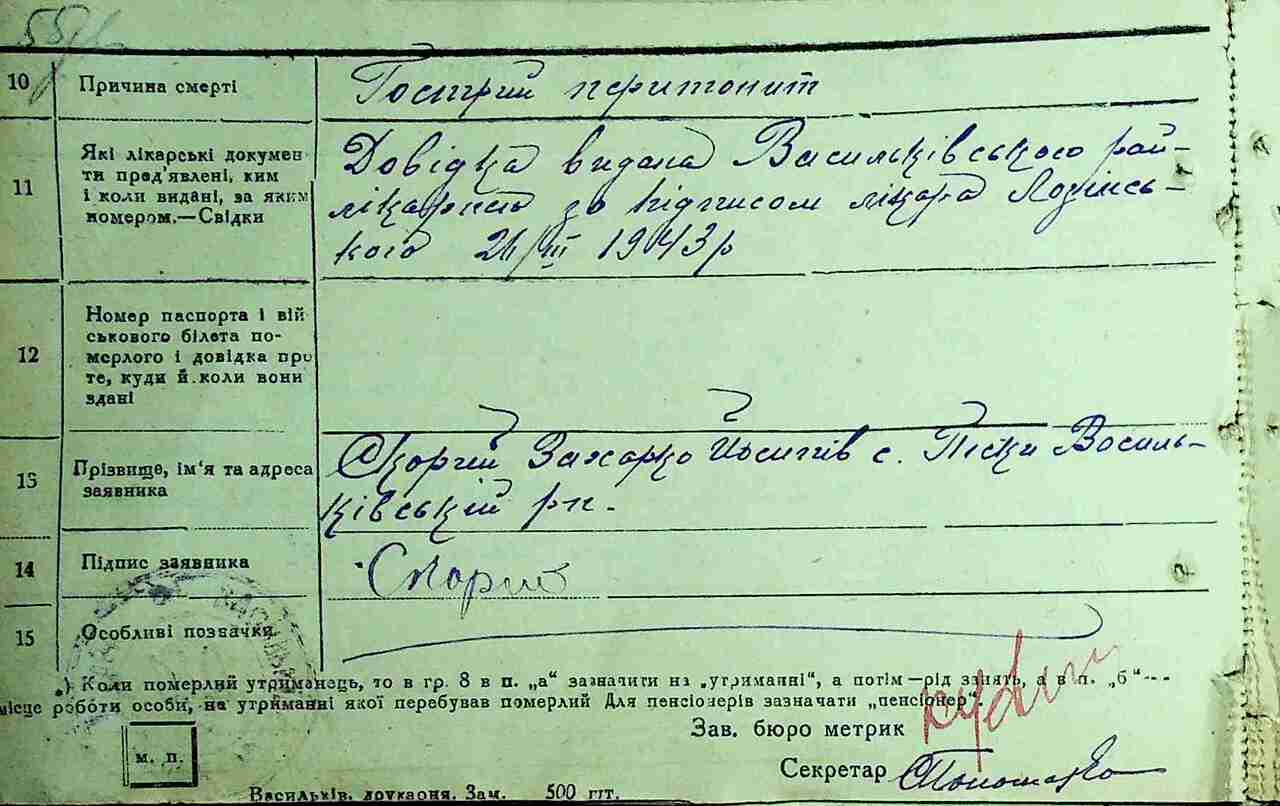 10 Причина смерті Гострий перитонит
11 Які лікарські докумен-
ти пред'явлені, ким
і коли видані, за яким
номером.—Свідки
Довідка видана Васильківського рай-
лікарнею за підписом лікара Лозінсь-
кого 1943р
12 Номер паспорта і вій
ськового білета по-
мерлого і довідка про
те, куди й коли вони
здані
13 Прізвище, ім'я та адреса
заявника
Скорий Захарко с. Піски Василь-
ківській рн.
14 Підпис заявника Скорий
15 Особливі позначки
) Коли померлий утриманець, то в гр. 8 в п. „а“ зазначити на „утриманні“, а потім—рід занять, а в п. „б“—
місце роботи особи, на утриманні якої перебував померлий Для пенсіонерів зазначати „пенсіонер“.
Зав. бюро метрик
м. п.
Секретар
Васильків. друкарня. Зам. 500 шт.